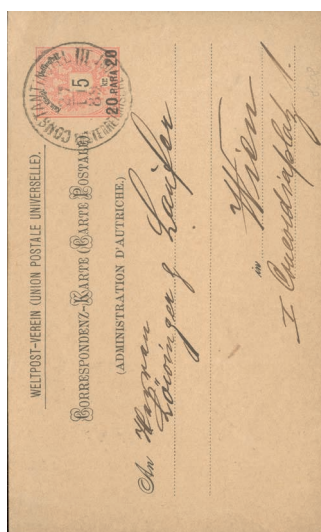 WELTPOST-VEREIN (UNION POSTALE UNIVERSELLE).
CORRESPONDENZ-KARTE (CARTE POSTALE)
(ADMINISTRATION D'AUTRICHE.)
20 PARA 20
CONSTANT
5
An Herren
Löwinger & Laufer
in Wien
I
1.